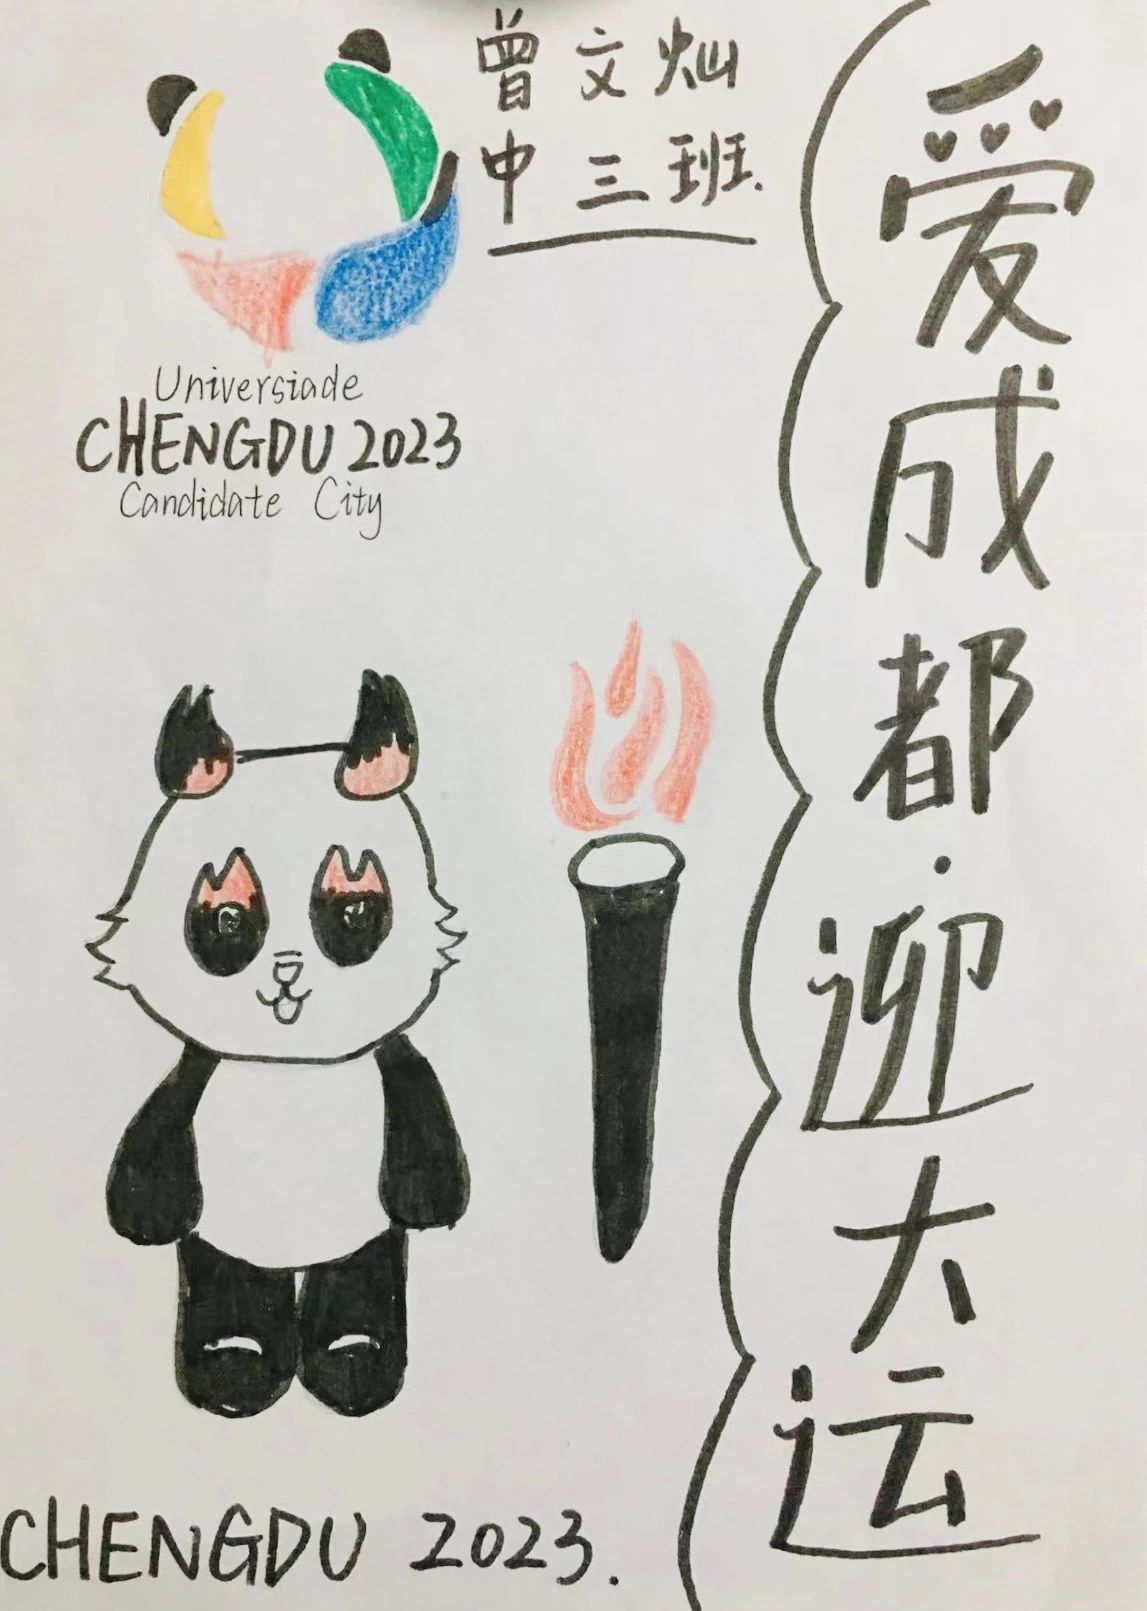 曾文灿
中三班.
Universiade
CHENGDU 2023
Candidate City
爱成都·迎大运
CHENGDU 2023.